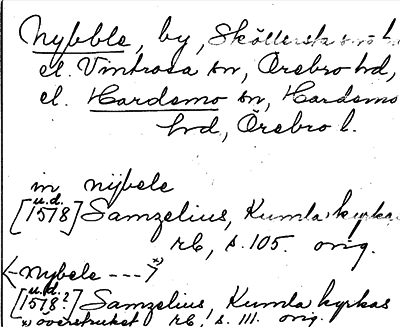 Nybble, by, Skällersta sn
el. Vintrosa sn, Örebro hd,
el. Hardemo sn, Hardemo
hd, Örebro l.
in nijbele
u.d.
[1578] Samzelius, Kumla kyrkas
rb, s. 105. orig.
<-nybele ---> *)
u.d.
[1578?] Samzelius, Kumla kyrkas
*) överstruket rb, s. 111. orig.